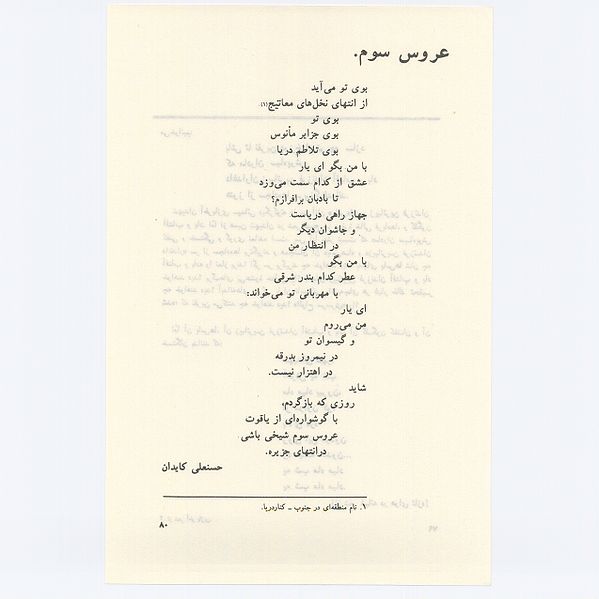 عروس سوم.
بوی تو می‌آید
از انتهای نخل‌های معاتیج(۱).
بوی تو
بوی جزایر مأنوس
بوی تلاطم دریا
با من بگو ای یار
عشق از کدام سمت می‌وزد
تا بادبان برافرازم؟
جهاز راهی دریاست
و جاشوان دیگر
در انتظار من
با من بگو
عطر کدام بندر شرقی
با مهربانی تو می‌خواند:
ای یار
من می‌روم
و گیسوان تو
در نیمروز بدرقه
در اهتزار نیست.
شاید
روزی که بازگردم،
با گوشواره‌ای از یاقوت
عروس سوم شیخی باشی
درانتهای جزیره.
حسنعلی کایدان
۱. نام منطقه‌ای در جنوب ـ کناردریا.
۸۰